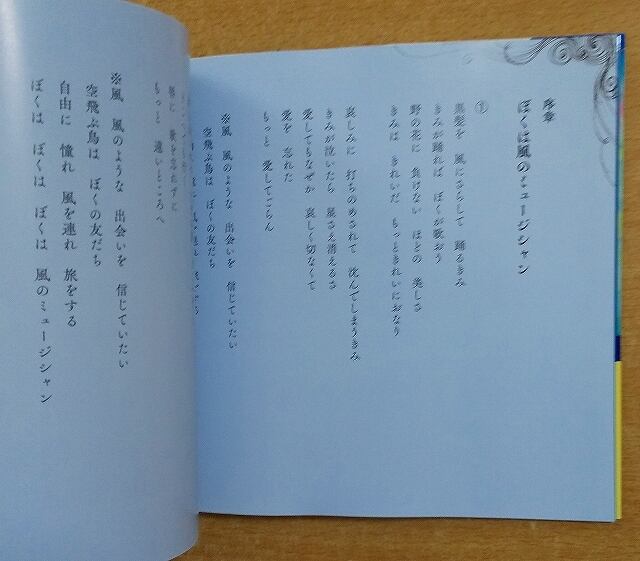 序章
ぼくは風のミュージシャン
①
黒髪を 風にさらして 踊るきみ
きみが踊れば ぼくが歌おう
野の花に 負けない ほどの 美しさ
きみは きれいだ もっときれいにおなり
哀しみに 打ちのめされて 沈んでしまうきみ
きみが泣いたら 星さえ消えるさ
愛してもなぜか 哀しく切なくて
愛を 忘れた
もっと 愛してごらん
※風 風のような 出会いを 信じていたい
空飛ぶ鳥は ぼくの友だち
もっと 遠いところへ
※風 風のような 出会いを 信じていたい
空飛ぶ鳥は ぼくの友だち
自由に 憧れ 風を連れ 旅をする
ぼくは ぼくは ぼくは 風のミュージシャン